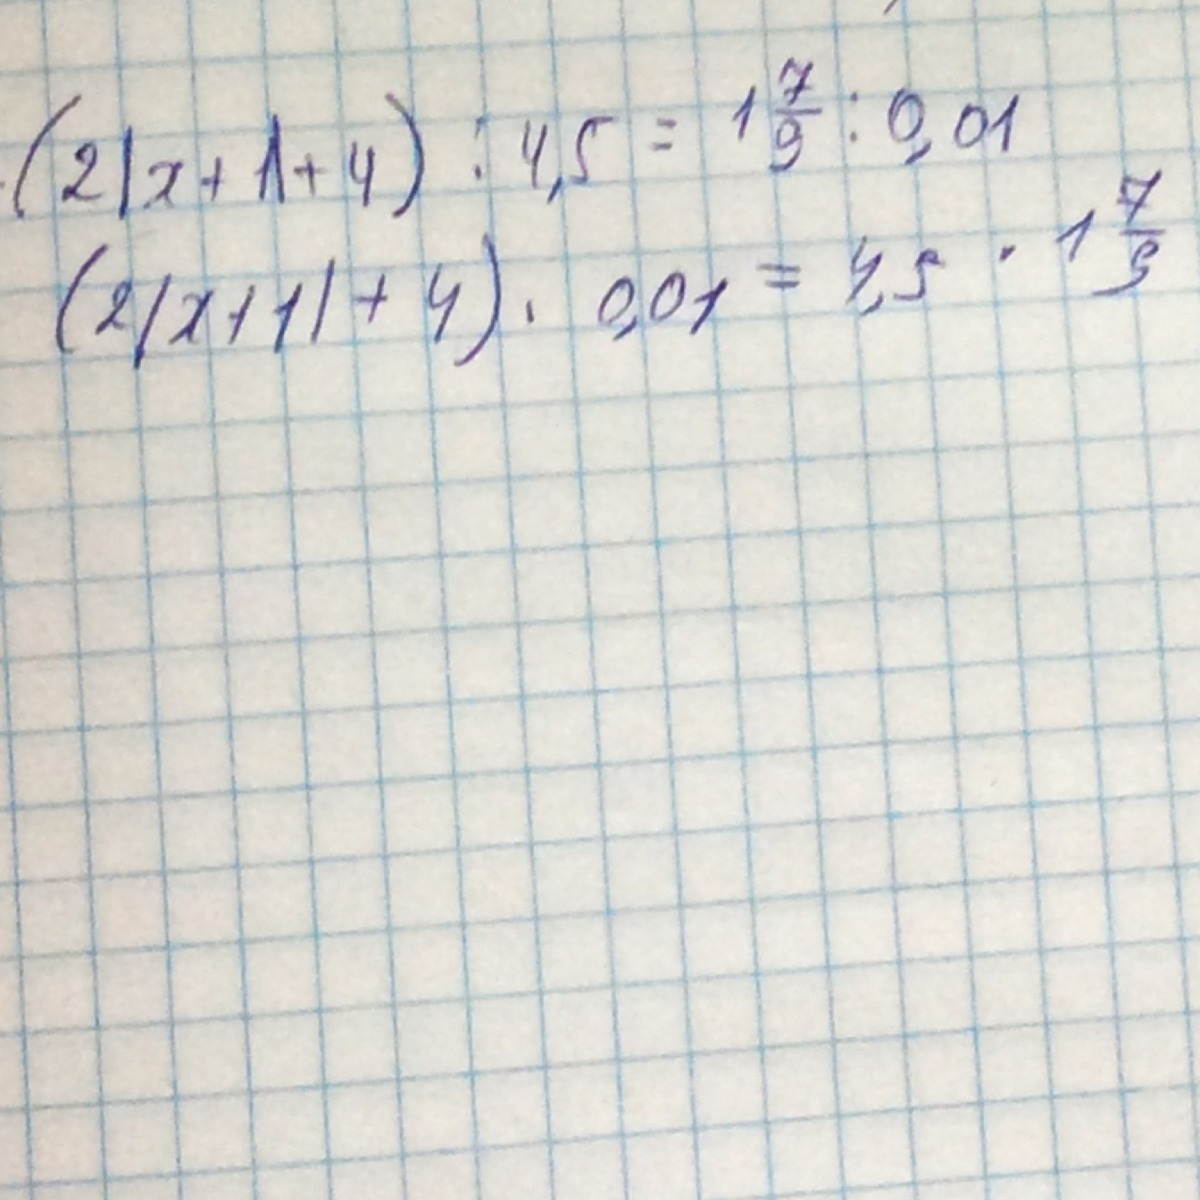 (2|x+1|+4) : 4,5 = 1 7/9 : 0,01
(2|x+1|+4) · 0,01 = 4,5 · 1 7/9